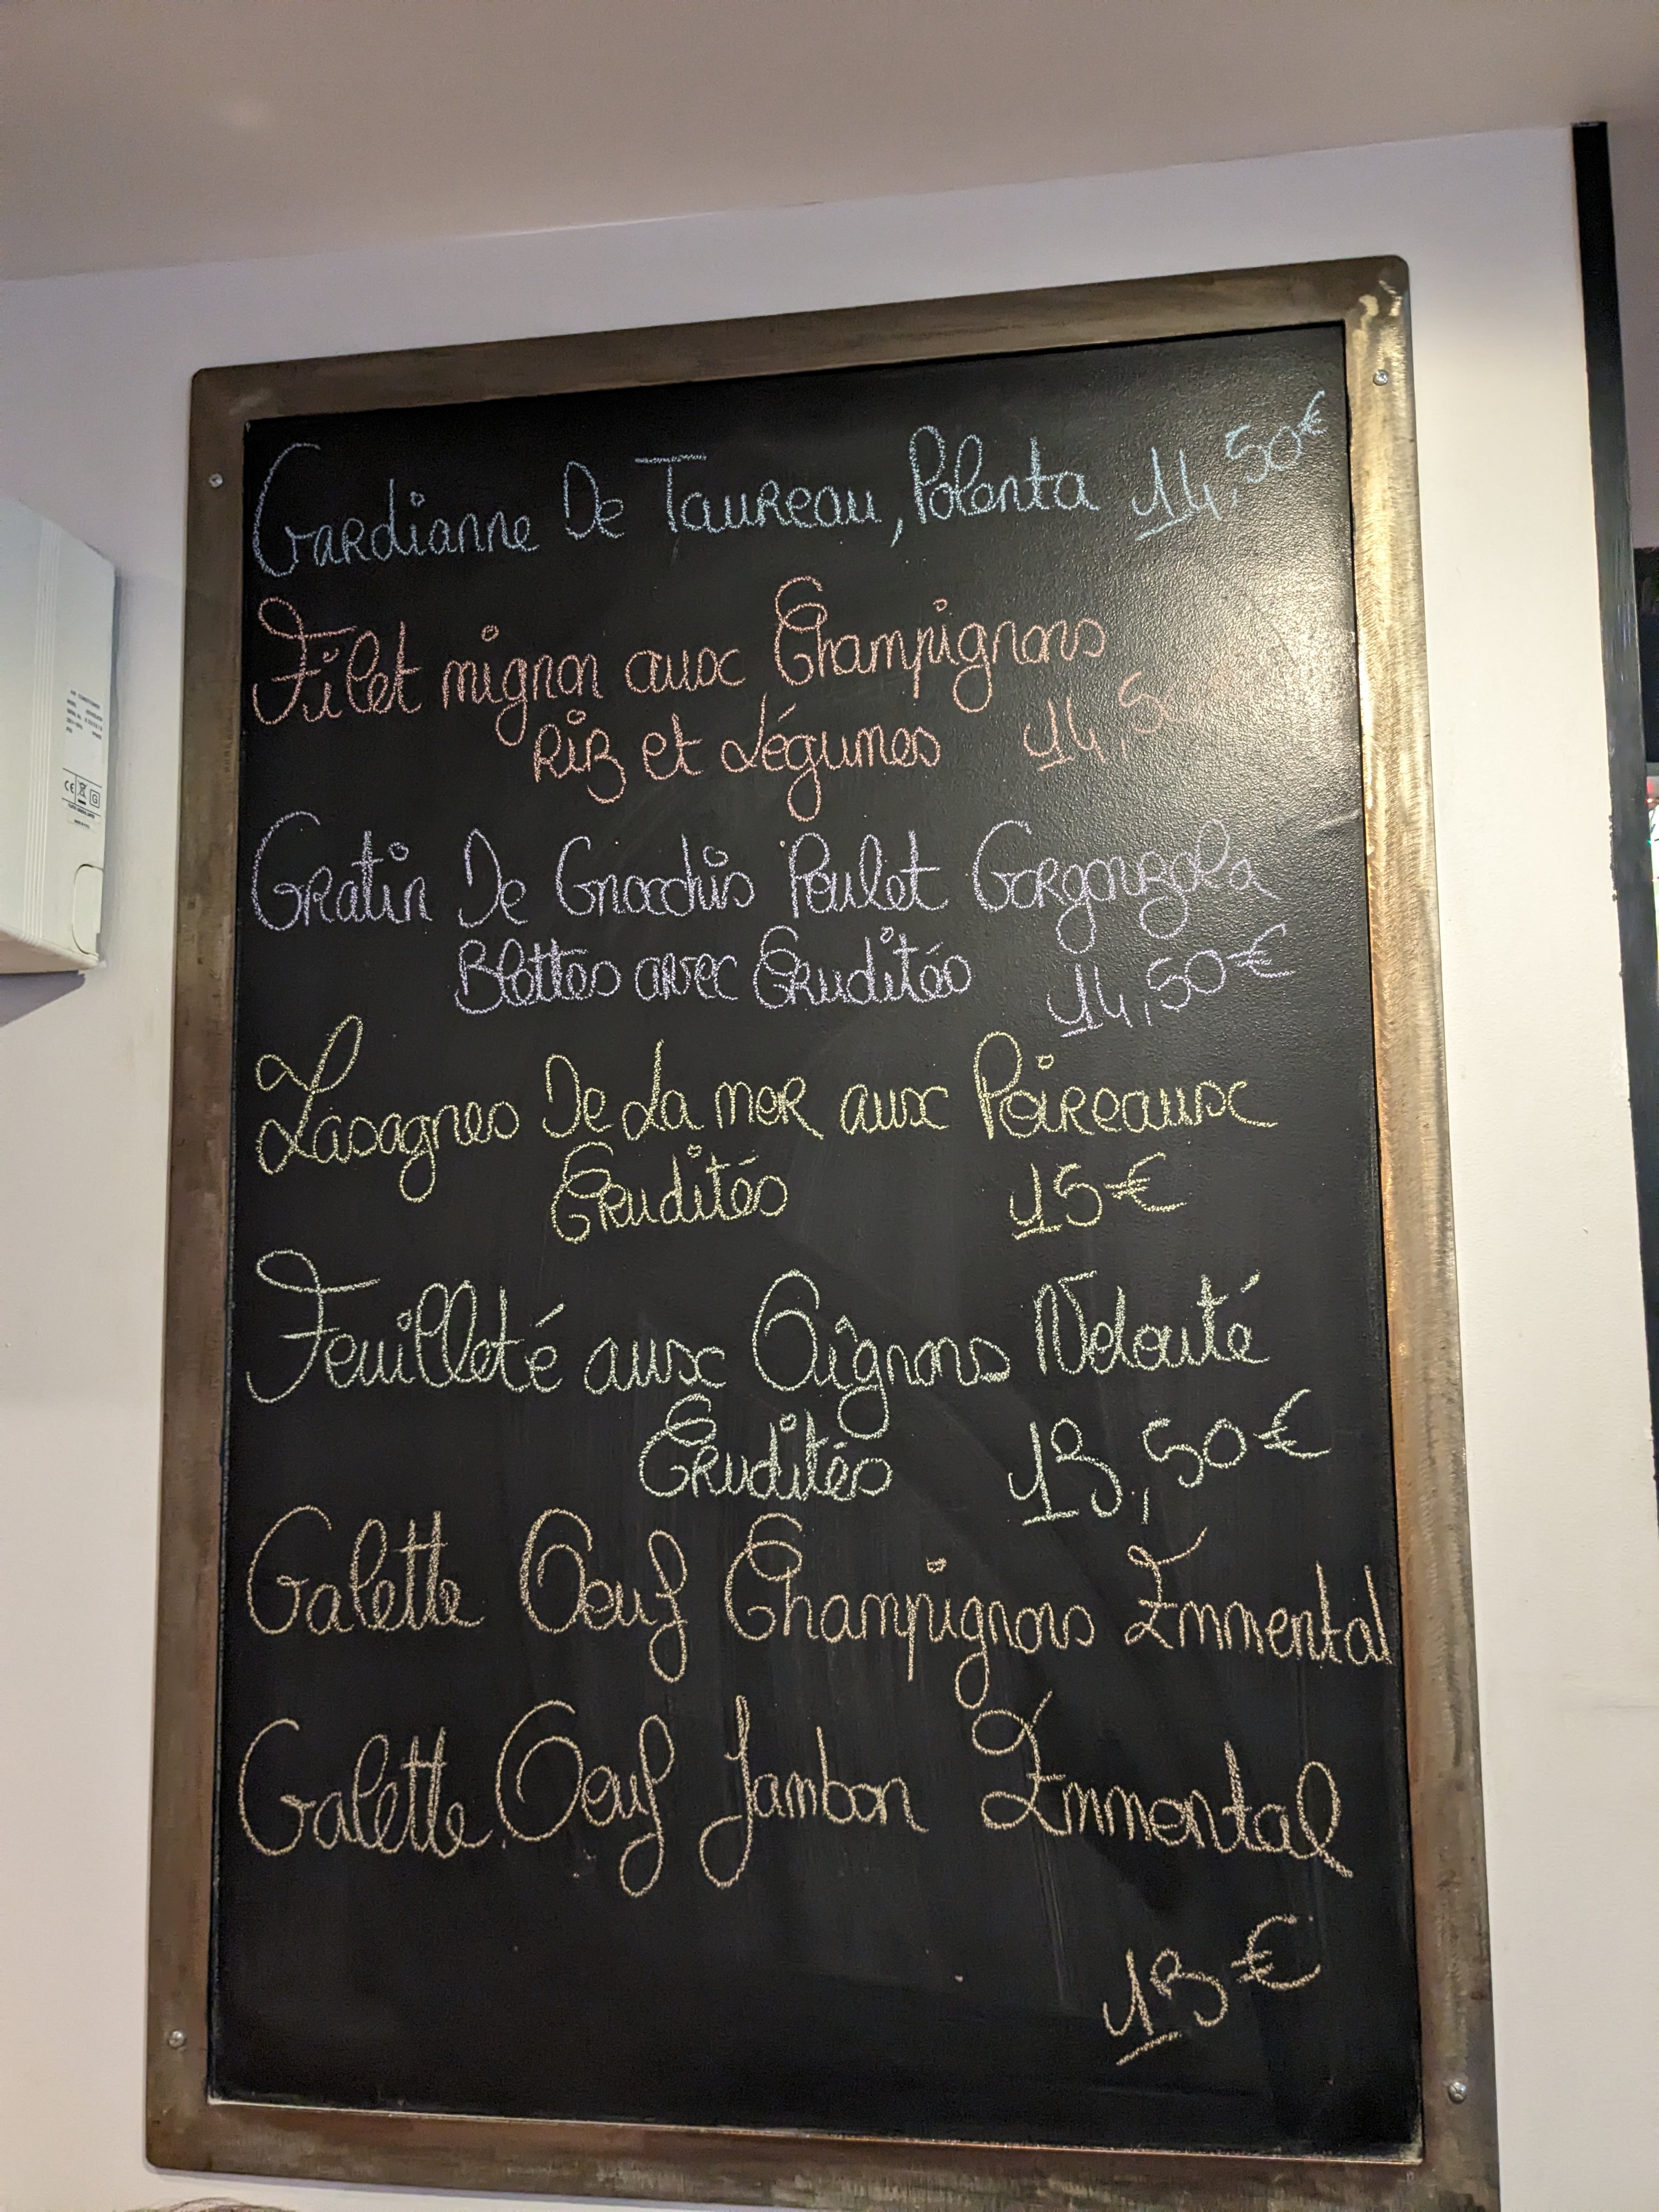 Gardianne De Taureau, Polenta 14,50€
Filet mignon aux Champignons
Riz et Légumes 14,50
Gratin De Gnocchis Poulet Gorgonzola
Blettes avec Crudités 14,50€
Lasagnes De La mer aux Poireaux
Crudités 15€
Feuilleté aux Oîgnons Velouté
Crudités 13,50€
Galette Oeuf Champignons Emmental
Galette Oeuf Jambon Emmental
13€
CE